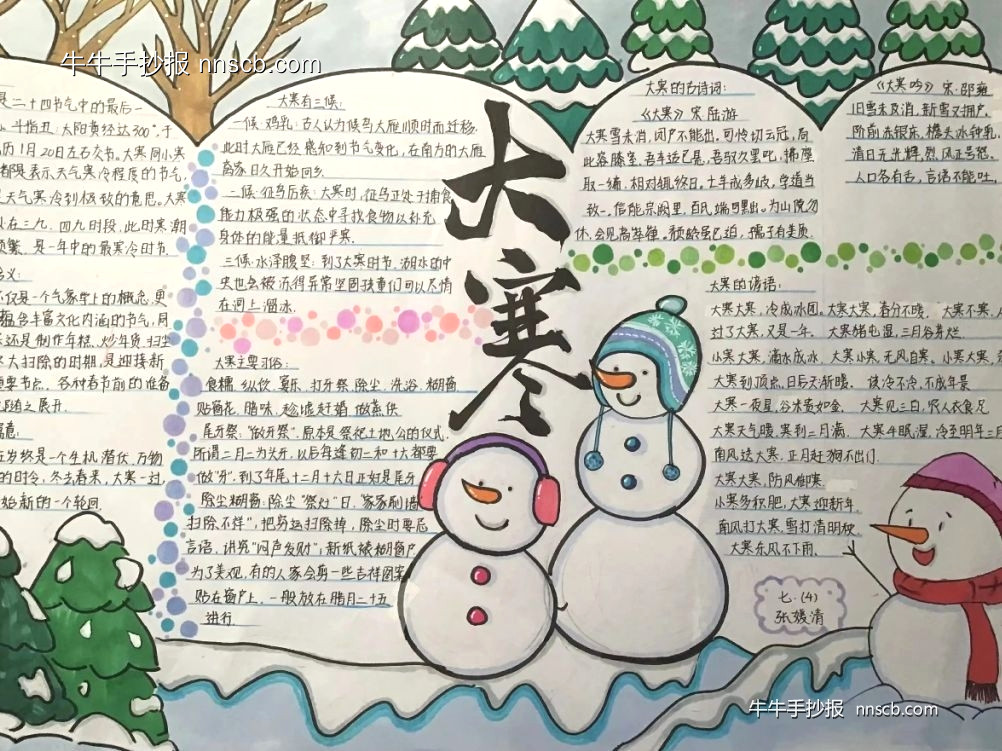 牛牛手抄报 nnscb.com
是二十四节气中的最后一
斗指丑;太阳黄经达300°,于
历1月20日左右交节。大寒同小寒
都是表示天气寒冷程度的节气,
是天气寒冷到极致的意思。大寒
在三九、四九时段,此时寒潮
频繁,是一年中的最寒冷时节.
仅是一个气象学上的概念,更
蕴含丰富文化内涵的节气,同
还是制作年糕、炒年货、扫尘
大扫除的时期,是迎接新
要节点。各种春节前的准备
随之展开.
在岁终是一个生机潜伏、万物
的时令,冬去春来,大寒一过,
始新的一个轮回.
大寒有三候:
一候·鸡乳:古人认为候鸟大雁顺时而迁移.
此时大雁已经感知到节气变化,在南方的大雁
离家日久开始回乡.
二候·征鸟厉疾:大寒时,征鸟正处于捕食
能力极强的状态中寻找食物以补充
身体的能量抵御严寒.
三候·水泽腹坚:到了大寒时节,湖水的中
央也会被冻得异常坚固孩童们可以尽情
在河上溜冰.
大寒主要习俗:
食糯、纵饮、宴乐、打牙祭、除尘、洗浴、糊窗
贴窗花、腊味、趁墟赶婚 做煮伕
尾牙祭:"做牙祭",原本是祭祀土地公的仪式.
所谓二月二为头牙,以后每逢初二和十六都要
做"牙",到了年尾十二月十六日正好是尾牙
除尘糊窗:除尘"祭灶"日,"家家刷墙
扫除不祥",把穷运扫除掉,除尘时要忌
言语,讲究"闷声发财";新纸裱糊窗户
为了美观,有的人家会剪一些吉祥图案
贴在窗户上,一般放在腊月二十五
进行.
大寒
大寒的古诗词:
《大寒》宋·陆游
大寒雪未消,闭户不能出,可怜切云冠,局
此容膝室,吾车适已悬,吾驭久罢叱,拂尘
取一编,相对辄终日,亡羊戒多歧,学道当
致一,信能宗阙里,百氏端可黜,为山傥勿
休,会见高崒嵂。颓龄虽已迫,孺子有美质.
《大寒吟》宋·邵雍
旧雪未及消,新雪又拥户.
阶前冻银床,檐头冰钟乳.
清日无光辉,烈风正号怒.
人口各有舌,言语不能吐.
大寒的谚语:
大寒大寒,冷成冰团。大寒大寒,春分不暖。 大寒不寒,
过了大寒,又是一年。 大寒猪屯湿,三月谷芽烂.
小寒大寒,滴水成冰。大寒小寒,无风自寒。小寒大寒,
大寒到顶点,日后天渐暖。 该冷不冷,不成年景
大寒一夜星,谷米贵如金。 大寒见三白,农人衣食足
大寒天气暖,寒到二月满。 大寒牛眠湿,冷至明年三月
南风送大寒,正月赶狗不出门.
大寒大寒,防风御寒.
小寒多积肥,大寒迎新年.
南风打大寒,雪打清明秧.
大寒东风不下雨。
七.(4)
张媛清
牛牛手抄报 nnscb.com